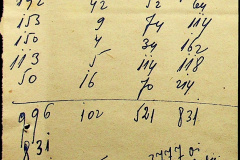 192 42 52 64
153 9 74 114
150 4 34 162
113 5 114 118
50 16 70 214
996 102 521 831
831